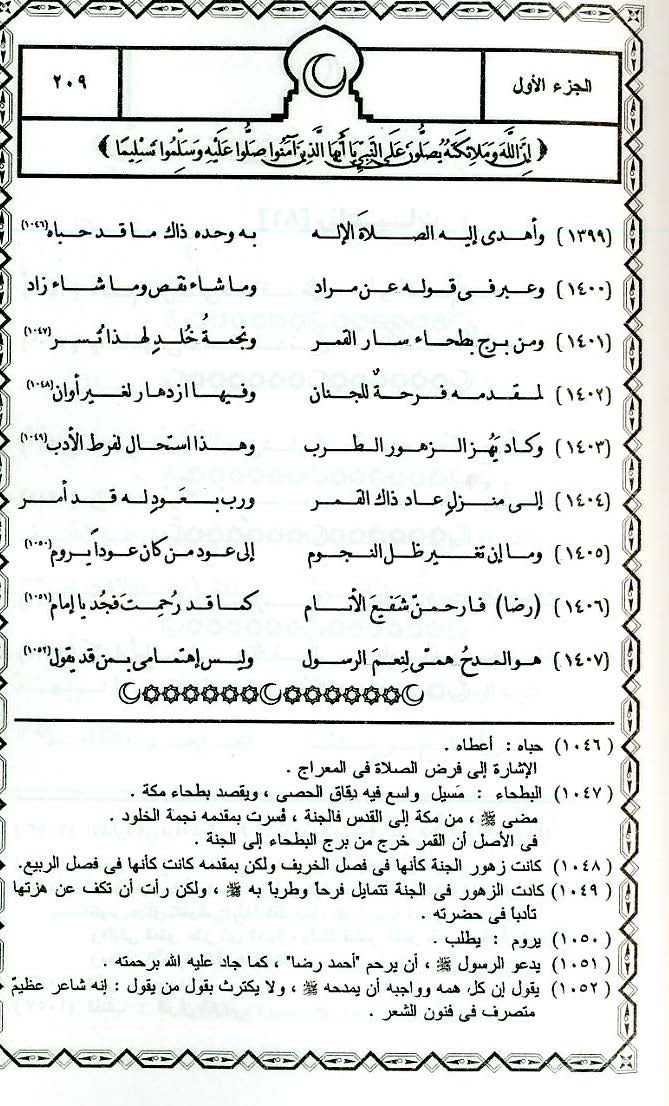 الجزء الأول
٢٠٩
﴿ إِنَّ اللَّهَ وَمَلَائِكَتَهُ يُصَلُّونَ عَلَى النَّبِيِّ يَا أَيُّهَا الَّذِينَ آمَنُوا صَلُّوا عَلَيْهِ وَسَلِّمُوا تَسْلِيمًا ﴾
(١٣٩٩) وأهدى إليه الصلاة الإله به وحده ذاك ما قد حباه (١٠٤٦)
(١٤٠٠) وعبر فى قوله عن مراد وما شاء نقص وما شاء زاد
(١٤٠١) ومن برج بطحاء سار القمر ونجمةُ خُلدٍ لهذا تُسر (١٠٤٧)
(١٤٠٢) لمقدمه فرحةٌ للجنان وفيها ازدهار لغير أوان (١٠٤٨)
(١٤٠٣) وكاد يَهُز الزهور الطرب وهذا استحال لفرط الأدب (١٠٤٩)
(١٤٠٤) إلى منزل عاد ذاك القمر ورب بعود له قد أمر
(١٤٠٥) وما إن تغير ظل النجوم إلى عود من كان عوداً يروم (١٠٥٠)
(١٤٠٦) (رضا) فارحمنّ شفيعَ الأنام كما قد رُحِمتَ فَجُد يا إمام (١٠٥١)
(١٤٠٧) هو المدحُ همّى لِنعمَ الرسول وليس إهتمامى بمن قد يقول (١٠٥٢)
(١٠٤٦) حباه : أعطاه .
الإشارة إلى فرض الصلاة فى المعراج .
(١٠٤٧) البطحاء : مَسيل واسع فيه دِقاق الحصى ، ويقصد بطحاء مكة .
مضى ﷺ ، من مكة إلى القدس فالجنة ، فسرت بمقدمه نجمة الخلود .
فى الأصل أن القمر خرج من برج البطحاء إلى الجنة .
(١٠٤٨) كانت زهور الجنة كأنها فى فصل الخريف ولكن بمقدمه كانت كأنها فى فصل الربيع.
(١٠٤٩) كادت الزهور فى الجنة تتمايل فرحاً وطرباً به ﷺ ، ولكن رأت أن تكف عن هزتها
تأدبا فى حضرته .
(١٠٥٠) يروم : يطلب .
(١٠٥١) يدعو الرسول ﷺ ، أن يرحم "أحمد رضا" ، كما جاد عليه الله برحمته .
(١٠٥٢) يقول إن كل همه وواجبه أن يمدحه ﷺ ، ولا يكترث بقول من يقول : إنه شاعر عظيمٌ
متصرف فى فنون الشعر .